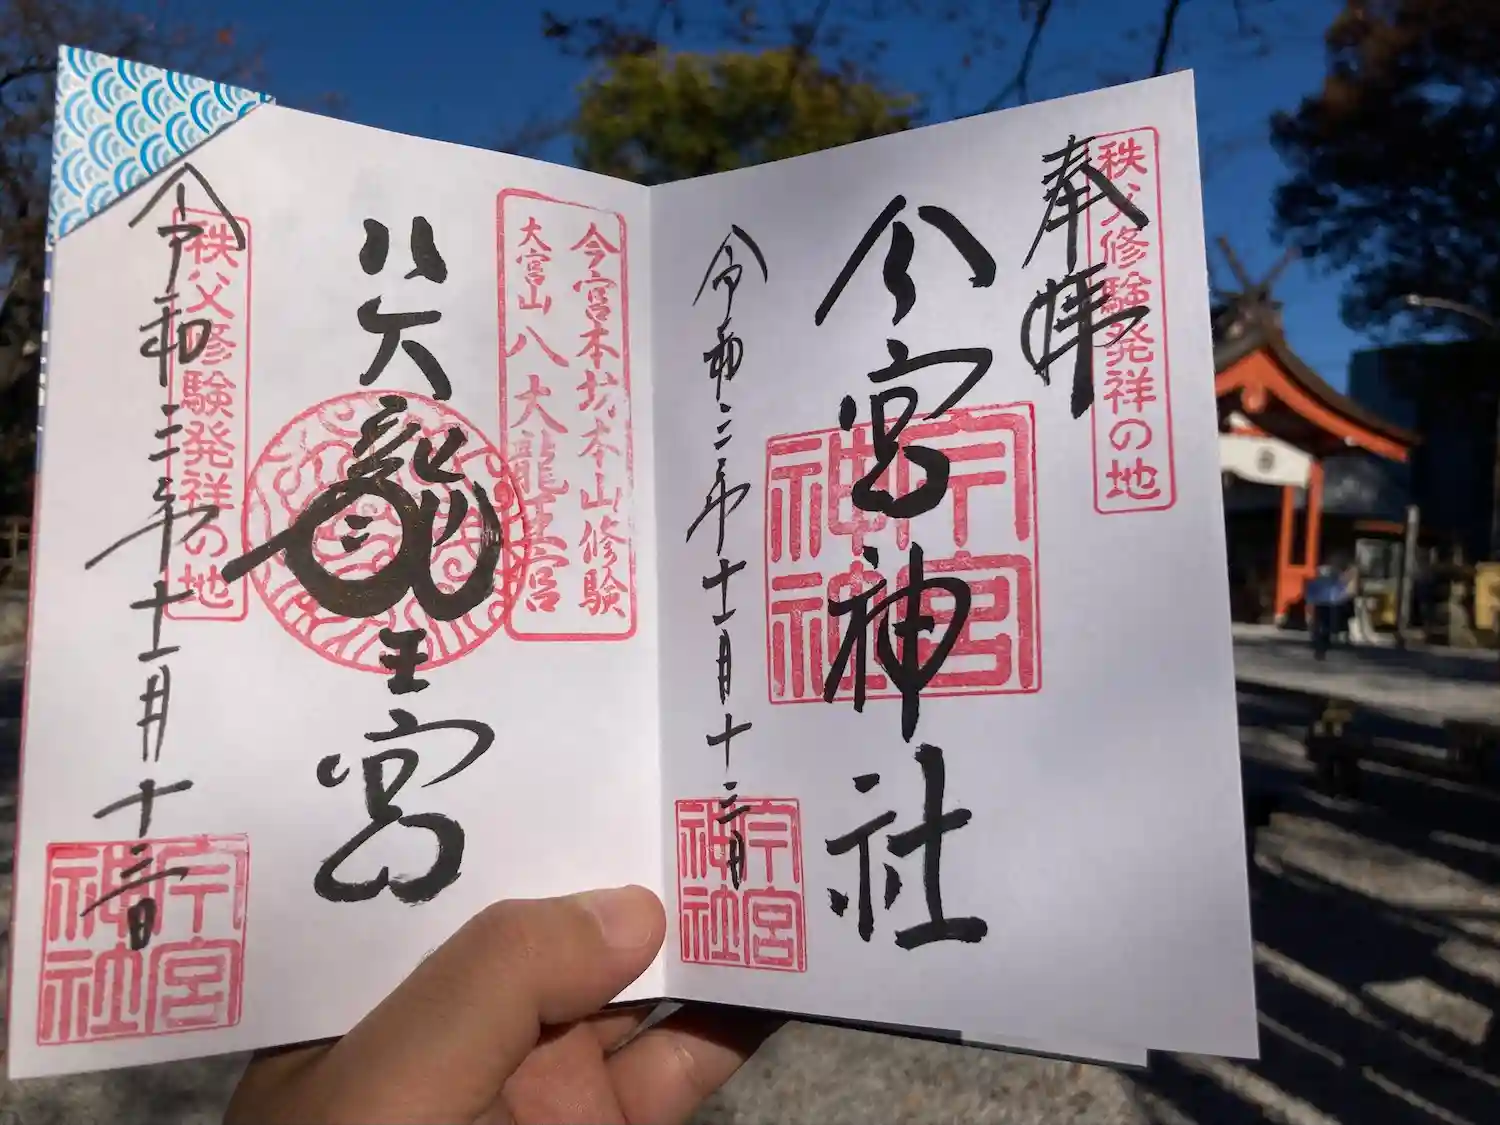 秩父修験発祥の地
奉拝
今宮神社
今宮神社
令和三年十一月十三日
今宮神社
今宮本坊本山修験
大宮山八大龍王宮
八大龍王宮
秩父修験発祥の地
令和三年十一月十三日
今宮神社